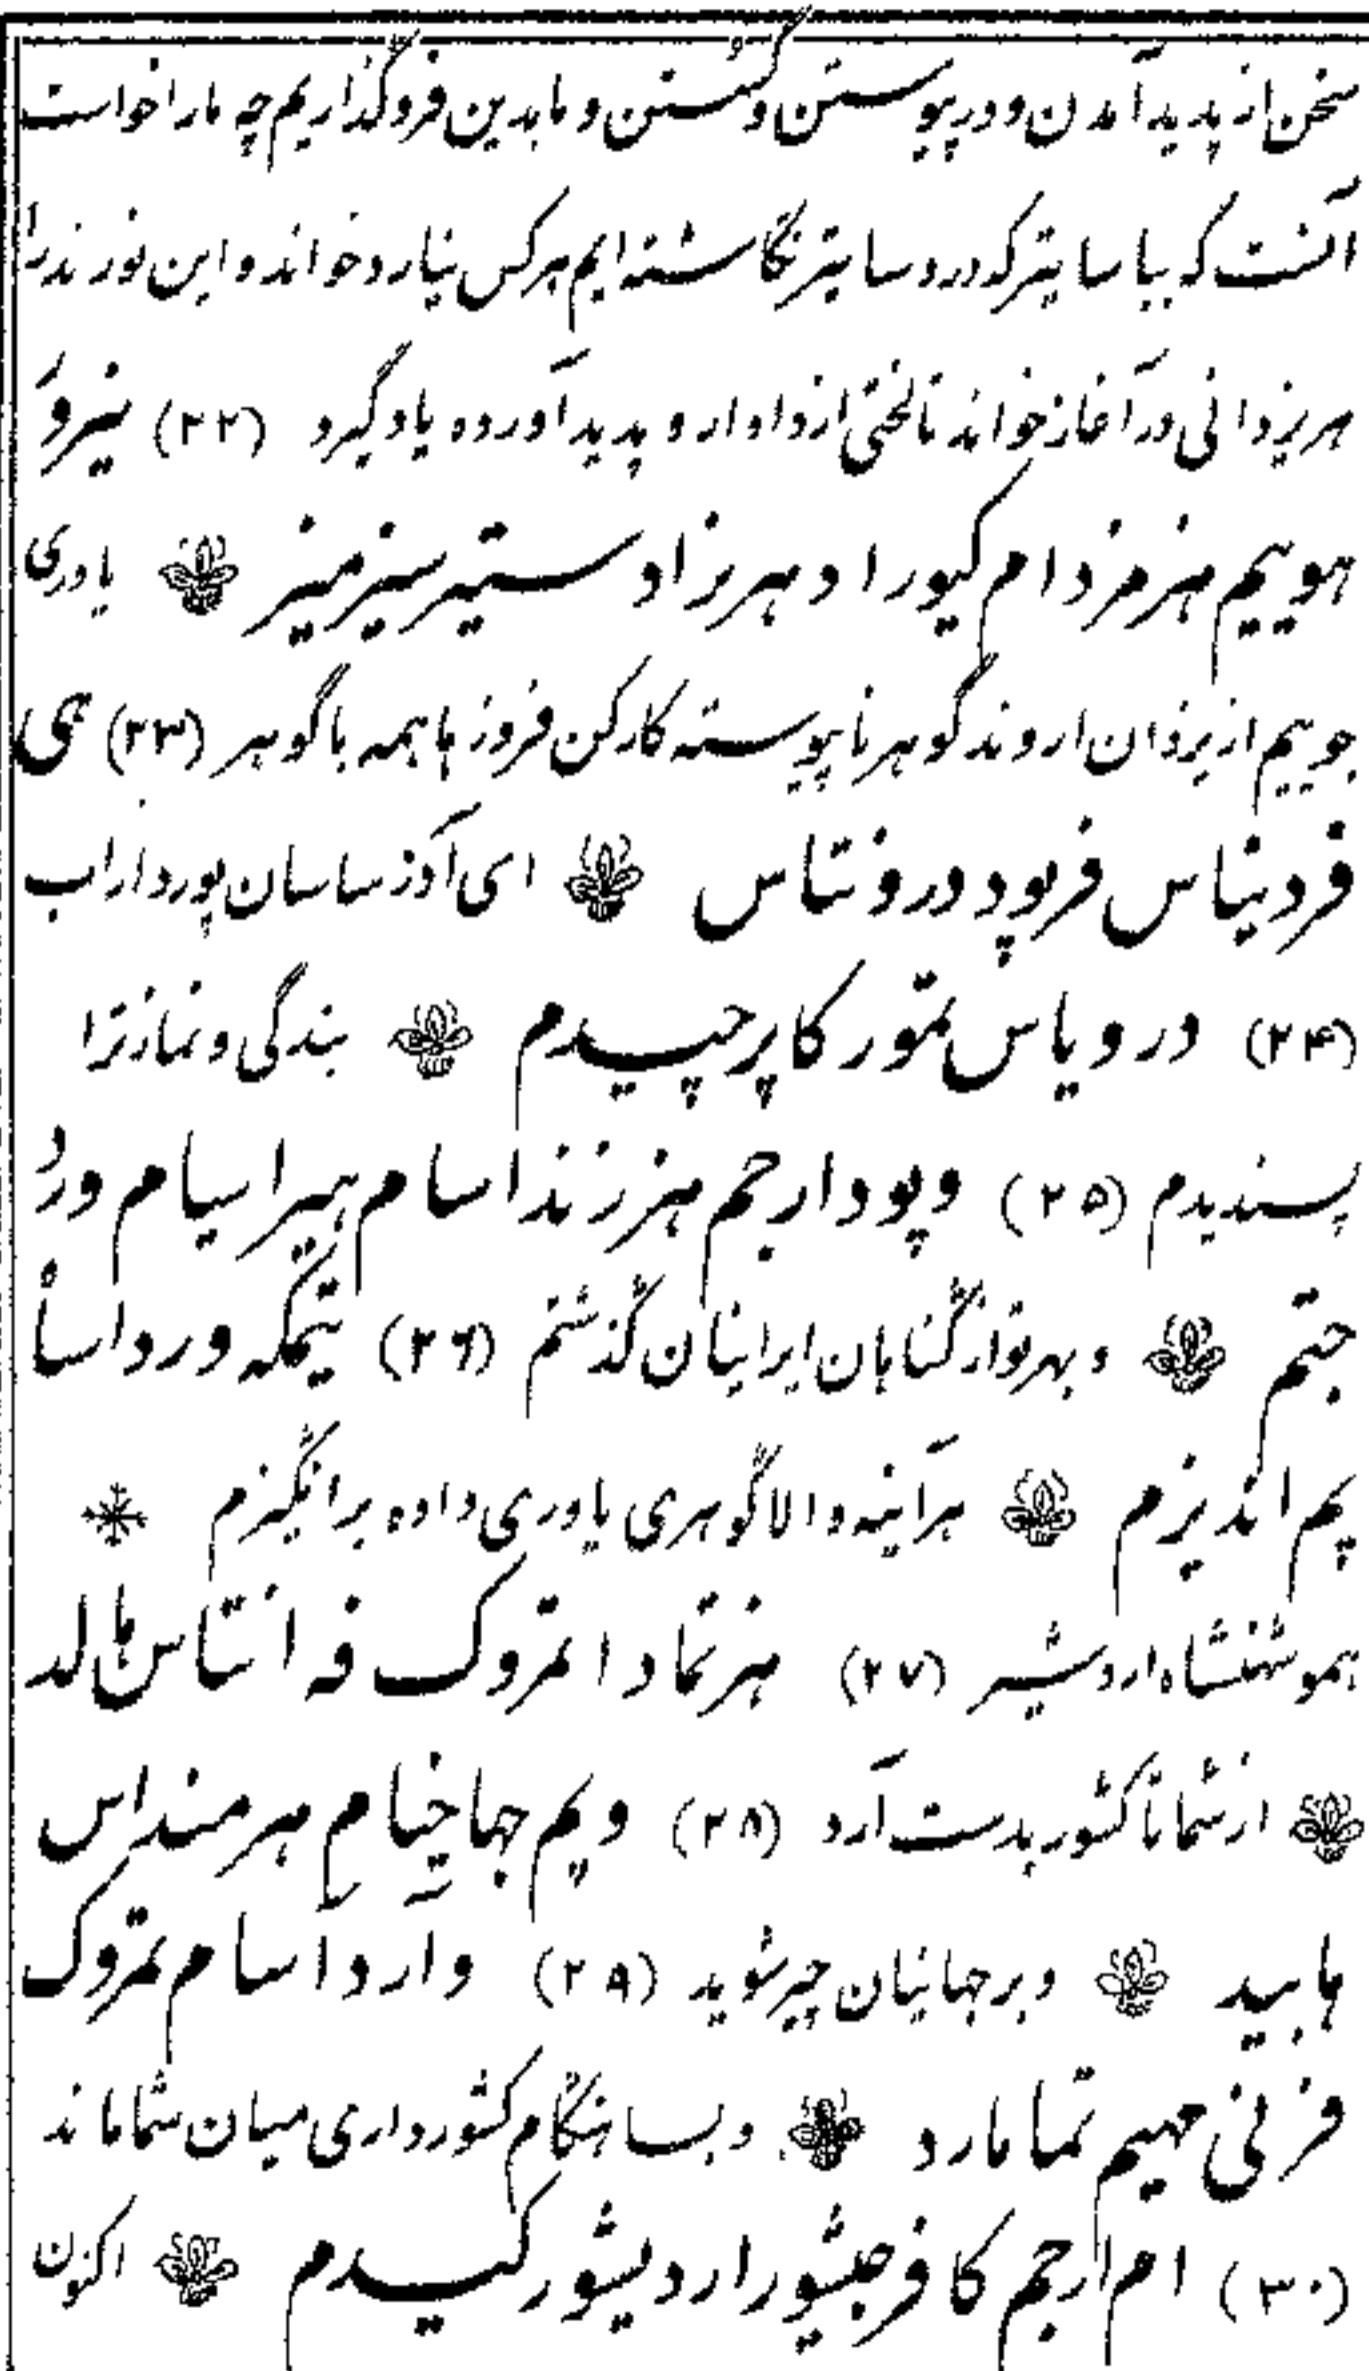 سخن از پدید آمدن و در پیوستن و گسستن و ما بدین فرو گذاریم چه ما را خواست
آنست که بیاساییتر که در دساتیر نگاشته ایم هر کس نیارد خواند و این نورند را
هر یزدانی در آغاز خواند تا لختی از دادار و پدید آورده یاد گیرد (۲۲) نیروَ
هوییم هنر مزدام کیورا د هرزاد ستیر سیز میز یاوری
جوییم از یزدان اروند گوهر ناپیوسته کار کن فروزها همه با گوهر (۲۳) هی
فردیناس فرپود درونتاس ای آذر ساسان پور داراب
(۲۴) درویاس تمور کاپرچپیدم بندگی و نماز ترا
پسندیدم (۲۵) وپو دارجم هنر زنداسام هیراسیام ورُ
جتم و بهر تو از گناهان ایرانیان گذشتم (۲۶) تیمکه ورداساْ
پم اندیزم هرآینه والا گوهری یاوری داده برانگیزم
همو شهنشاه اردشیر (۲۷) هنر تماد ا تمروک فه انتاس هالد
از شما نا کشور بدست آرد (۲۸) و پم جهاخیام هرمنداس
هابید و بر جهانیان چیر شوید (۲۹) وارد آسام تمروک
فرنی مهیم تما مارد و بسا هنگام کشورداری میان شما ماند
(۳۰) ام ارجم کا فرجیشور اردیشور کیسدم اکنون